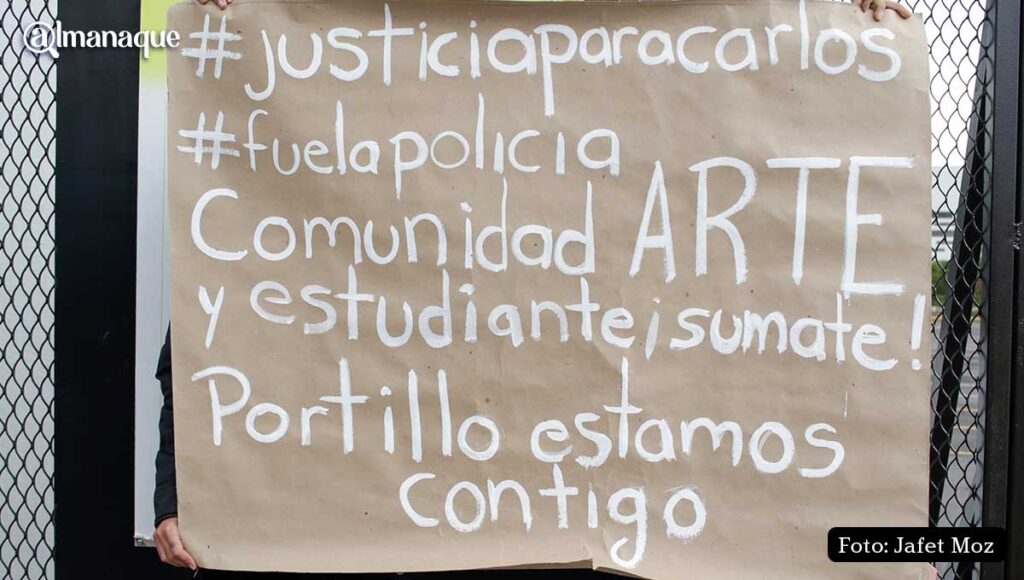 @lmanaque
#justiciaparacarlos
#fuelapolicia
Comunidad ARTE
y estudiante¡sumate!
Portillo estamos
contigo
Foto: Jafet Moz